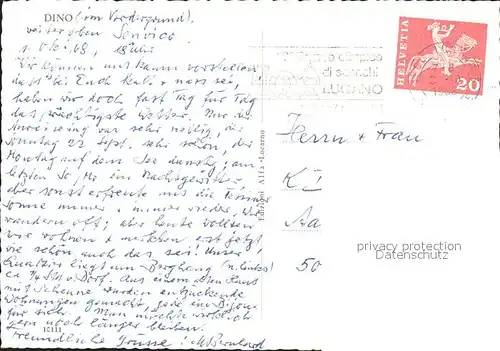 DINO (im Vordergrund),
weiter oben Sonvico
1. Okt. 68, 18 Uhr
Wir können uns kaum vorstellen
dass bei Euch kalt + nass sei,
haben wir doch fast Tag für Tag
das prächtigste Wetter. Nur
Anreisetag war sehr neblig, der
Sonntag 22. Sept. sehr schön, der
Montag auf dem See dunstig; am
letzten So/Mo ein Nachtgewitter
aber sonst erfreute uns die Tessiner
Sonne immer + immer wieder. Wir
wandern oft; aber heute wollten
wir wohnen + merkten erst jetzt,
wie schön auch das sei. Unser
Quartier liegt am Berghang (n. links)
ca 1/4 Std. v. Dorf. Aus einem alten Haus
mit Scheune wurden entzückende
Wohnungen gemacht, jede ein Bijou
für sich. Man möchte wirklich
gern noch länger bleiben.
Freundliche Grüsse: M. Bernhard
10111
Edizioni Alfa-Locarno
LUGANO
HELVETIA
20
Herrn + Frau
KI
Aa
50
privacy protection
Datenschutz